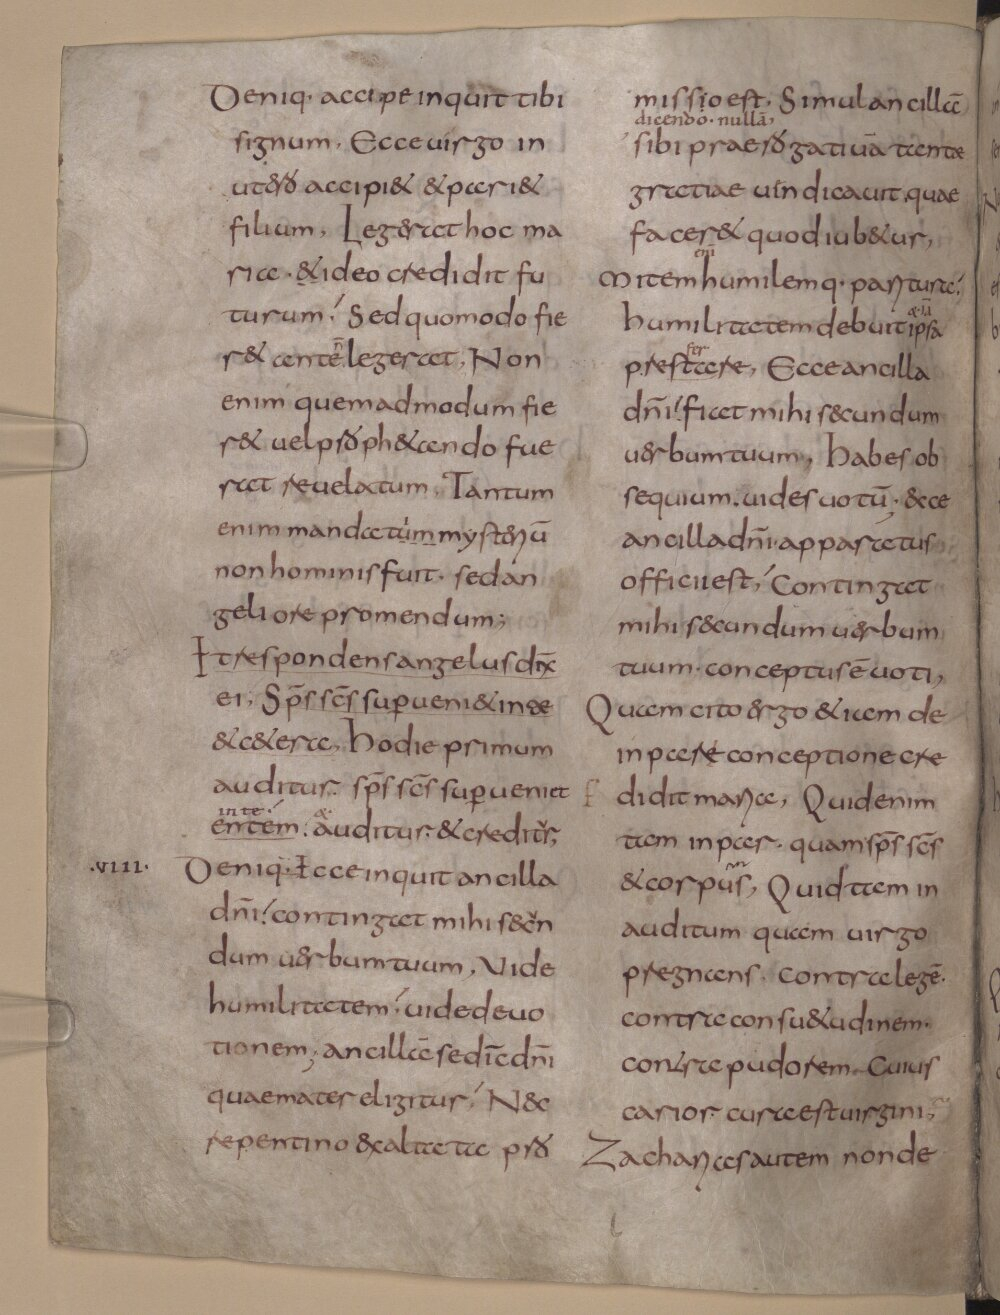 Deniq· accipe inquit tibi
signum, Ecce uirgo in
utero accipi& & pari&
filium, Legerat hoc ma
ria· & ideo credidit fu
turum! Sed quomodo fie
r& ante ñ legerat, Non
enim quemadmodum fie
r& uel proph&ando fue
rat reuelatum, Tantum
enim mandatum mysteriū
non hominis fuit· sed an
geli ore promendum;
Et respondens angelus dix
ei, Sp̄s sc̄s superueni& in te
& c&era, Hodie primum
auditur· sp̄s sc̄s superueniet
in te!
entem. & auditur & creditur,
·VIII· Deniq· Ecce inquit ancilla
dn̄i! contingat mihi secun
dum uerbum tuum, Vide
humilitatem! uide deuo
tionem, ancillā se dic̄ dn̄i
quae mater eligitur! Nec
repentino exaltata pro
missio est, Simul ancillā
dicendo· nullā,
sibi praerogatiuā tantae
gratiae uindicauit, quae
facer& quod iub&ur,
Mitem enī humilemq· paritura!
humilitatem debuit & iā ipsa
prestare, Ecce ancilla
dn̄i! fiat mihi secundum
uerbum tuum, Habes ob
sequium. uides uotū, ecce
ancilla dn̄i· apparatus
officii est! Contingat
mihi secundum uerbum
tuum· conceptus ē uoti,
Quam cito ergo &iam de
inpare conceptione cre
didit maria, Quid enim
tam inpar· quam sp̄s sc̄s
& corpus, Quid tam in
auditum quam uirgo
pregnans. contra legē·
contra consu&udinem·
contra pudorem. Cuius
carior cura est uirgini,
Zacharias autem non de